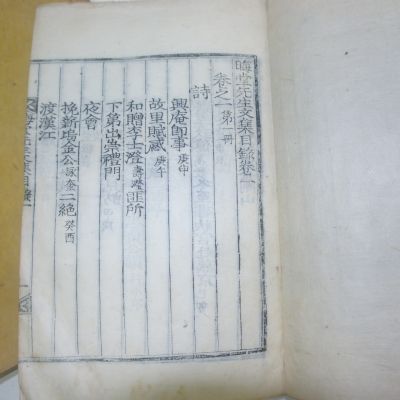 晦堂先生文集目錄卷一
卷之一 第一冊
詩
興庵卽事 庚申
故里賦歲 庚午
和贈李士澄 匪所
下第出崇禮門
夜會
挽新塢金公 二絶 癸酉
渡漢江